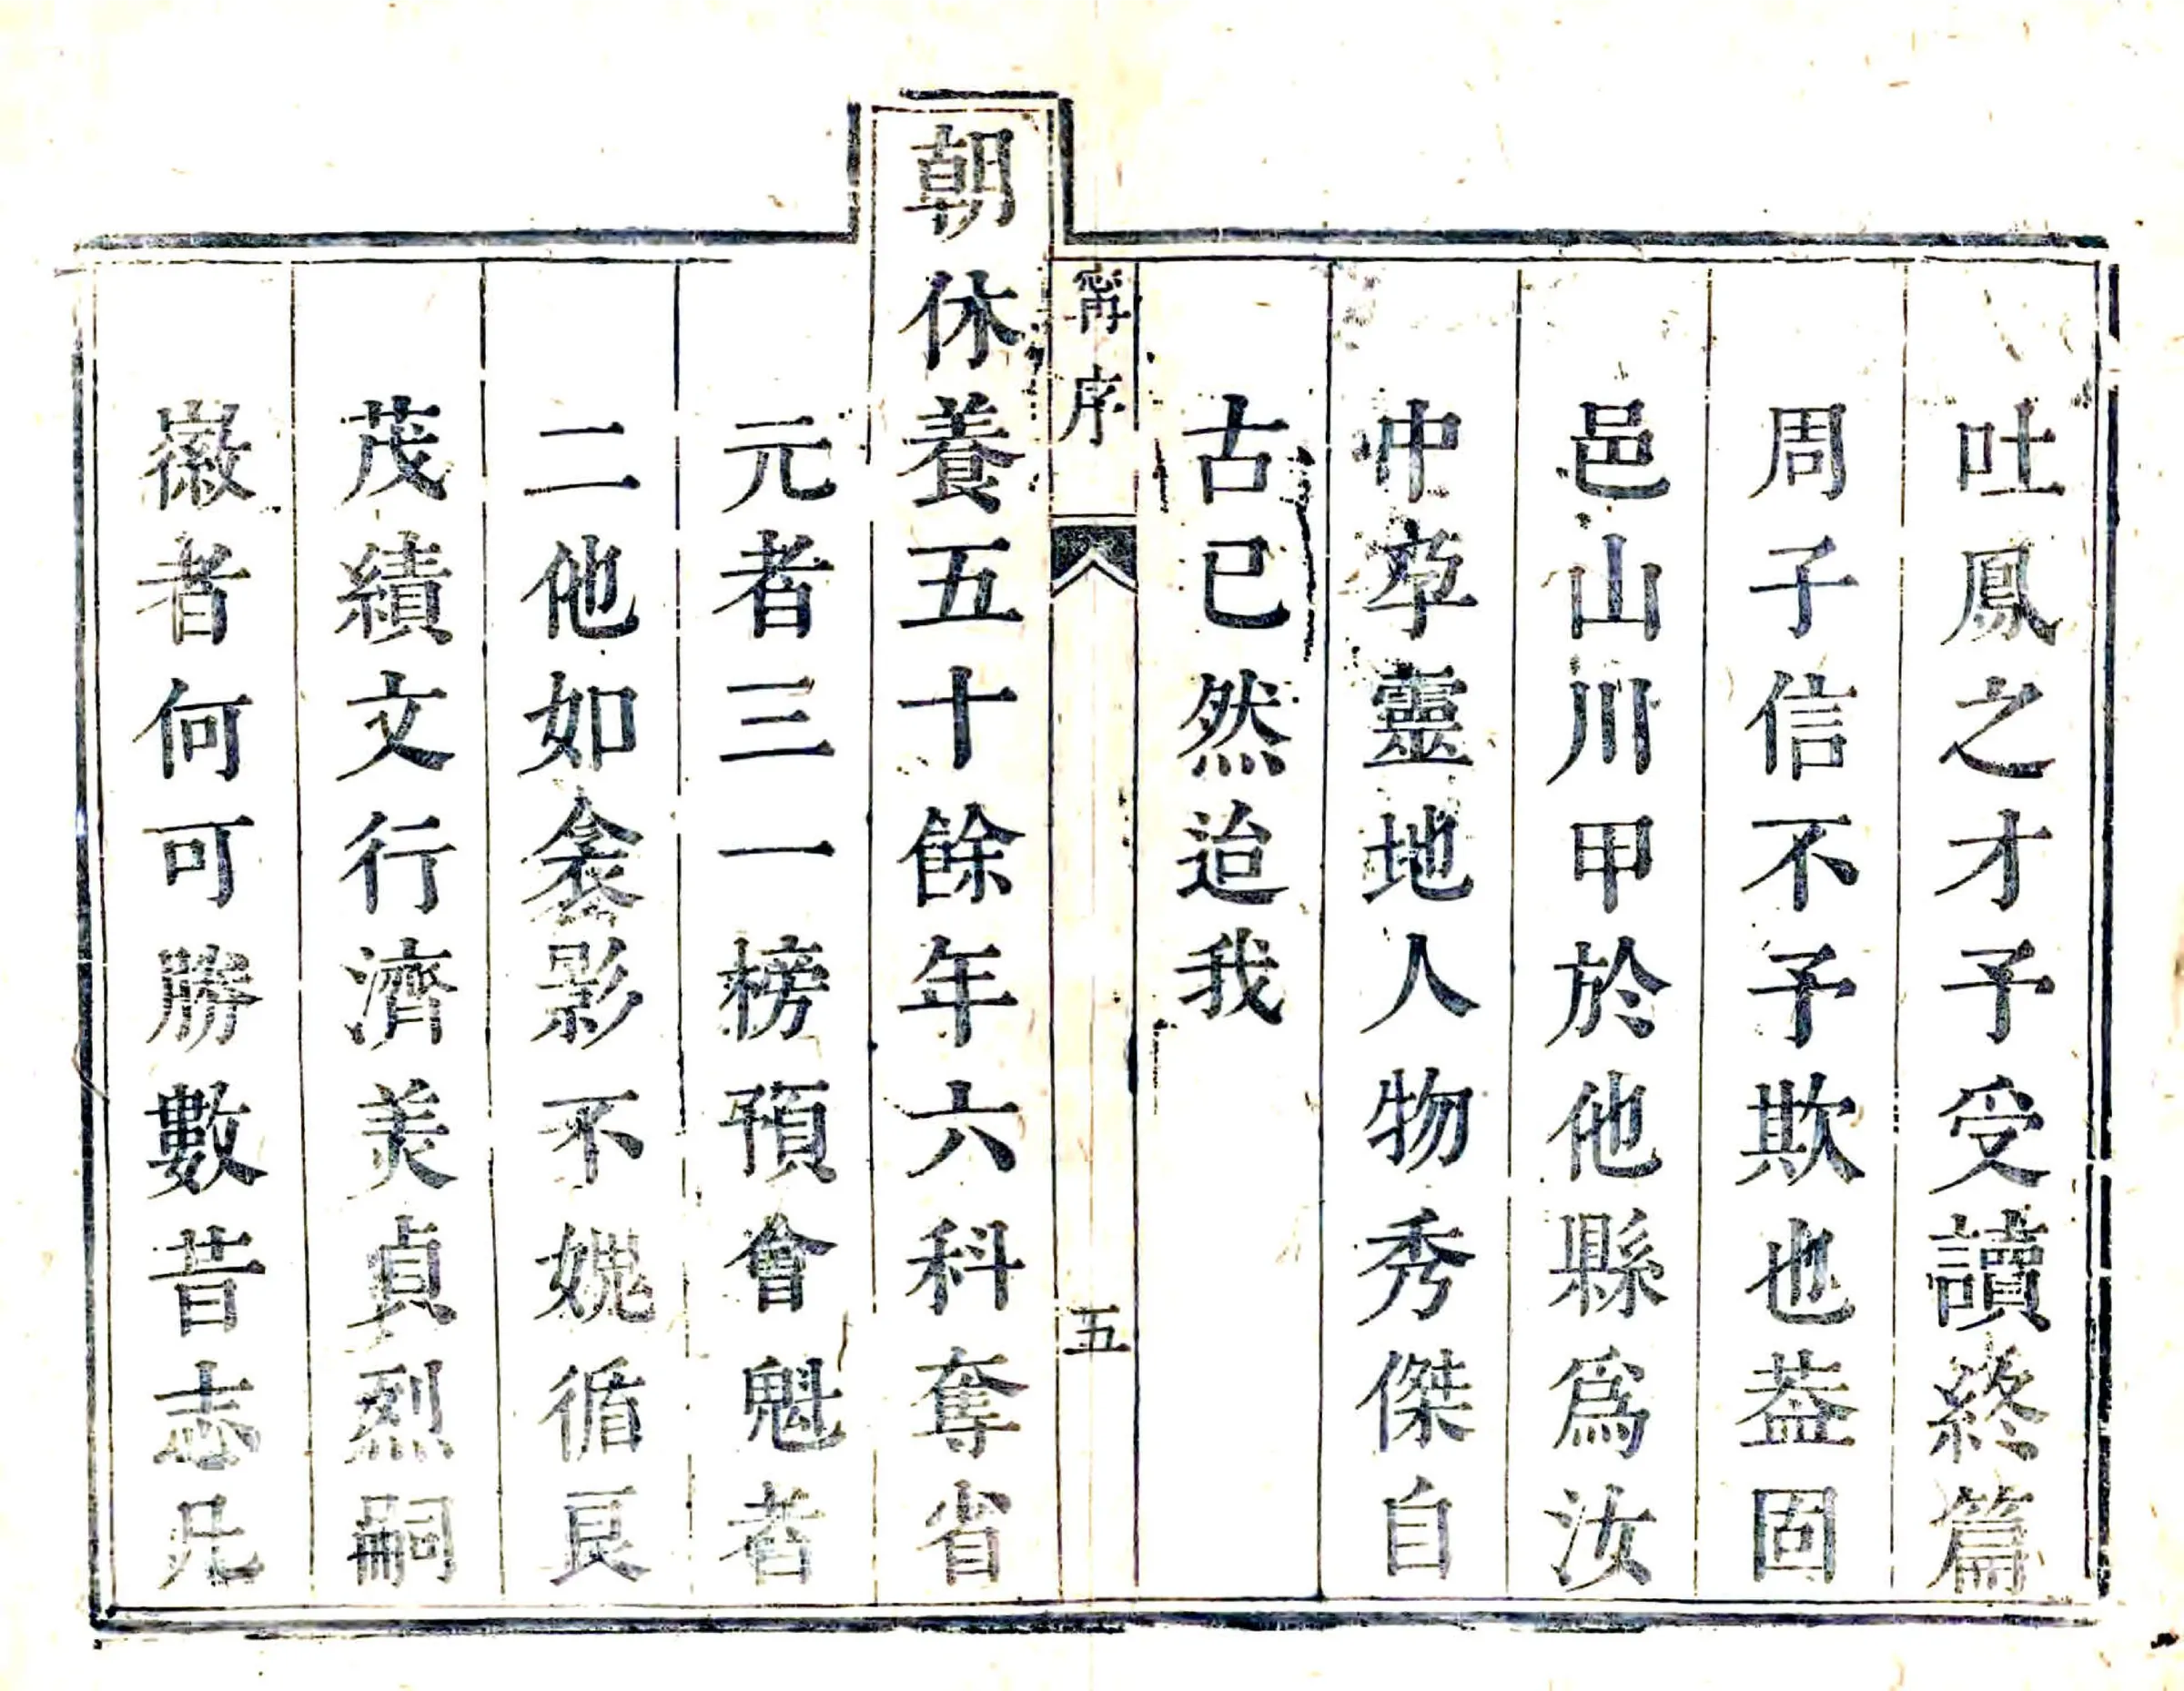 吐鳳之才予受讀終篇
周子信不予欺也葢固
邑山川甲於他縣爲汝
中卒靈地人物秀傑自
古已然迨我
甯序
五
朝休養五十餘年六科奪省
元者三一榜預會魁者
二他如衾影不媿循良
茂績文行濟美貞烈嗣
徽者何可勝數昔志凡